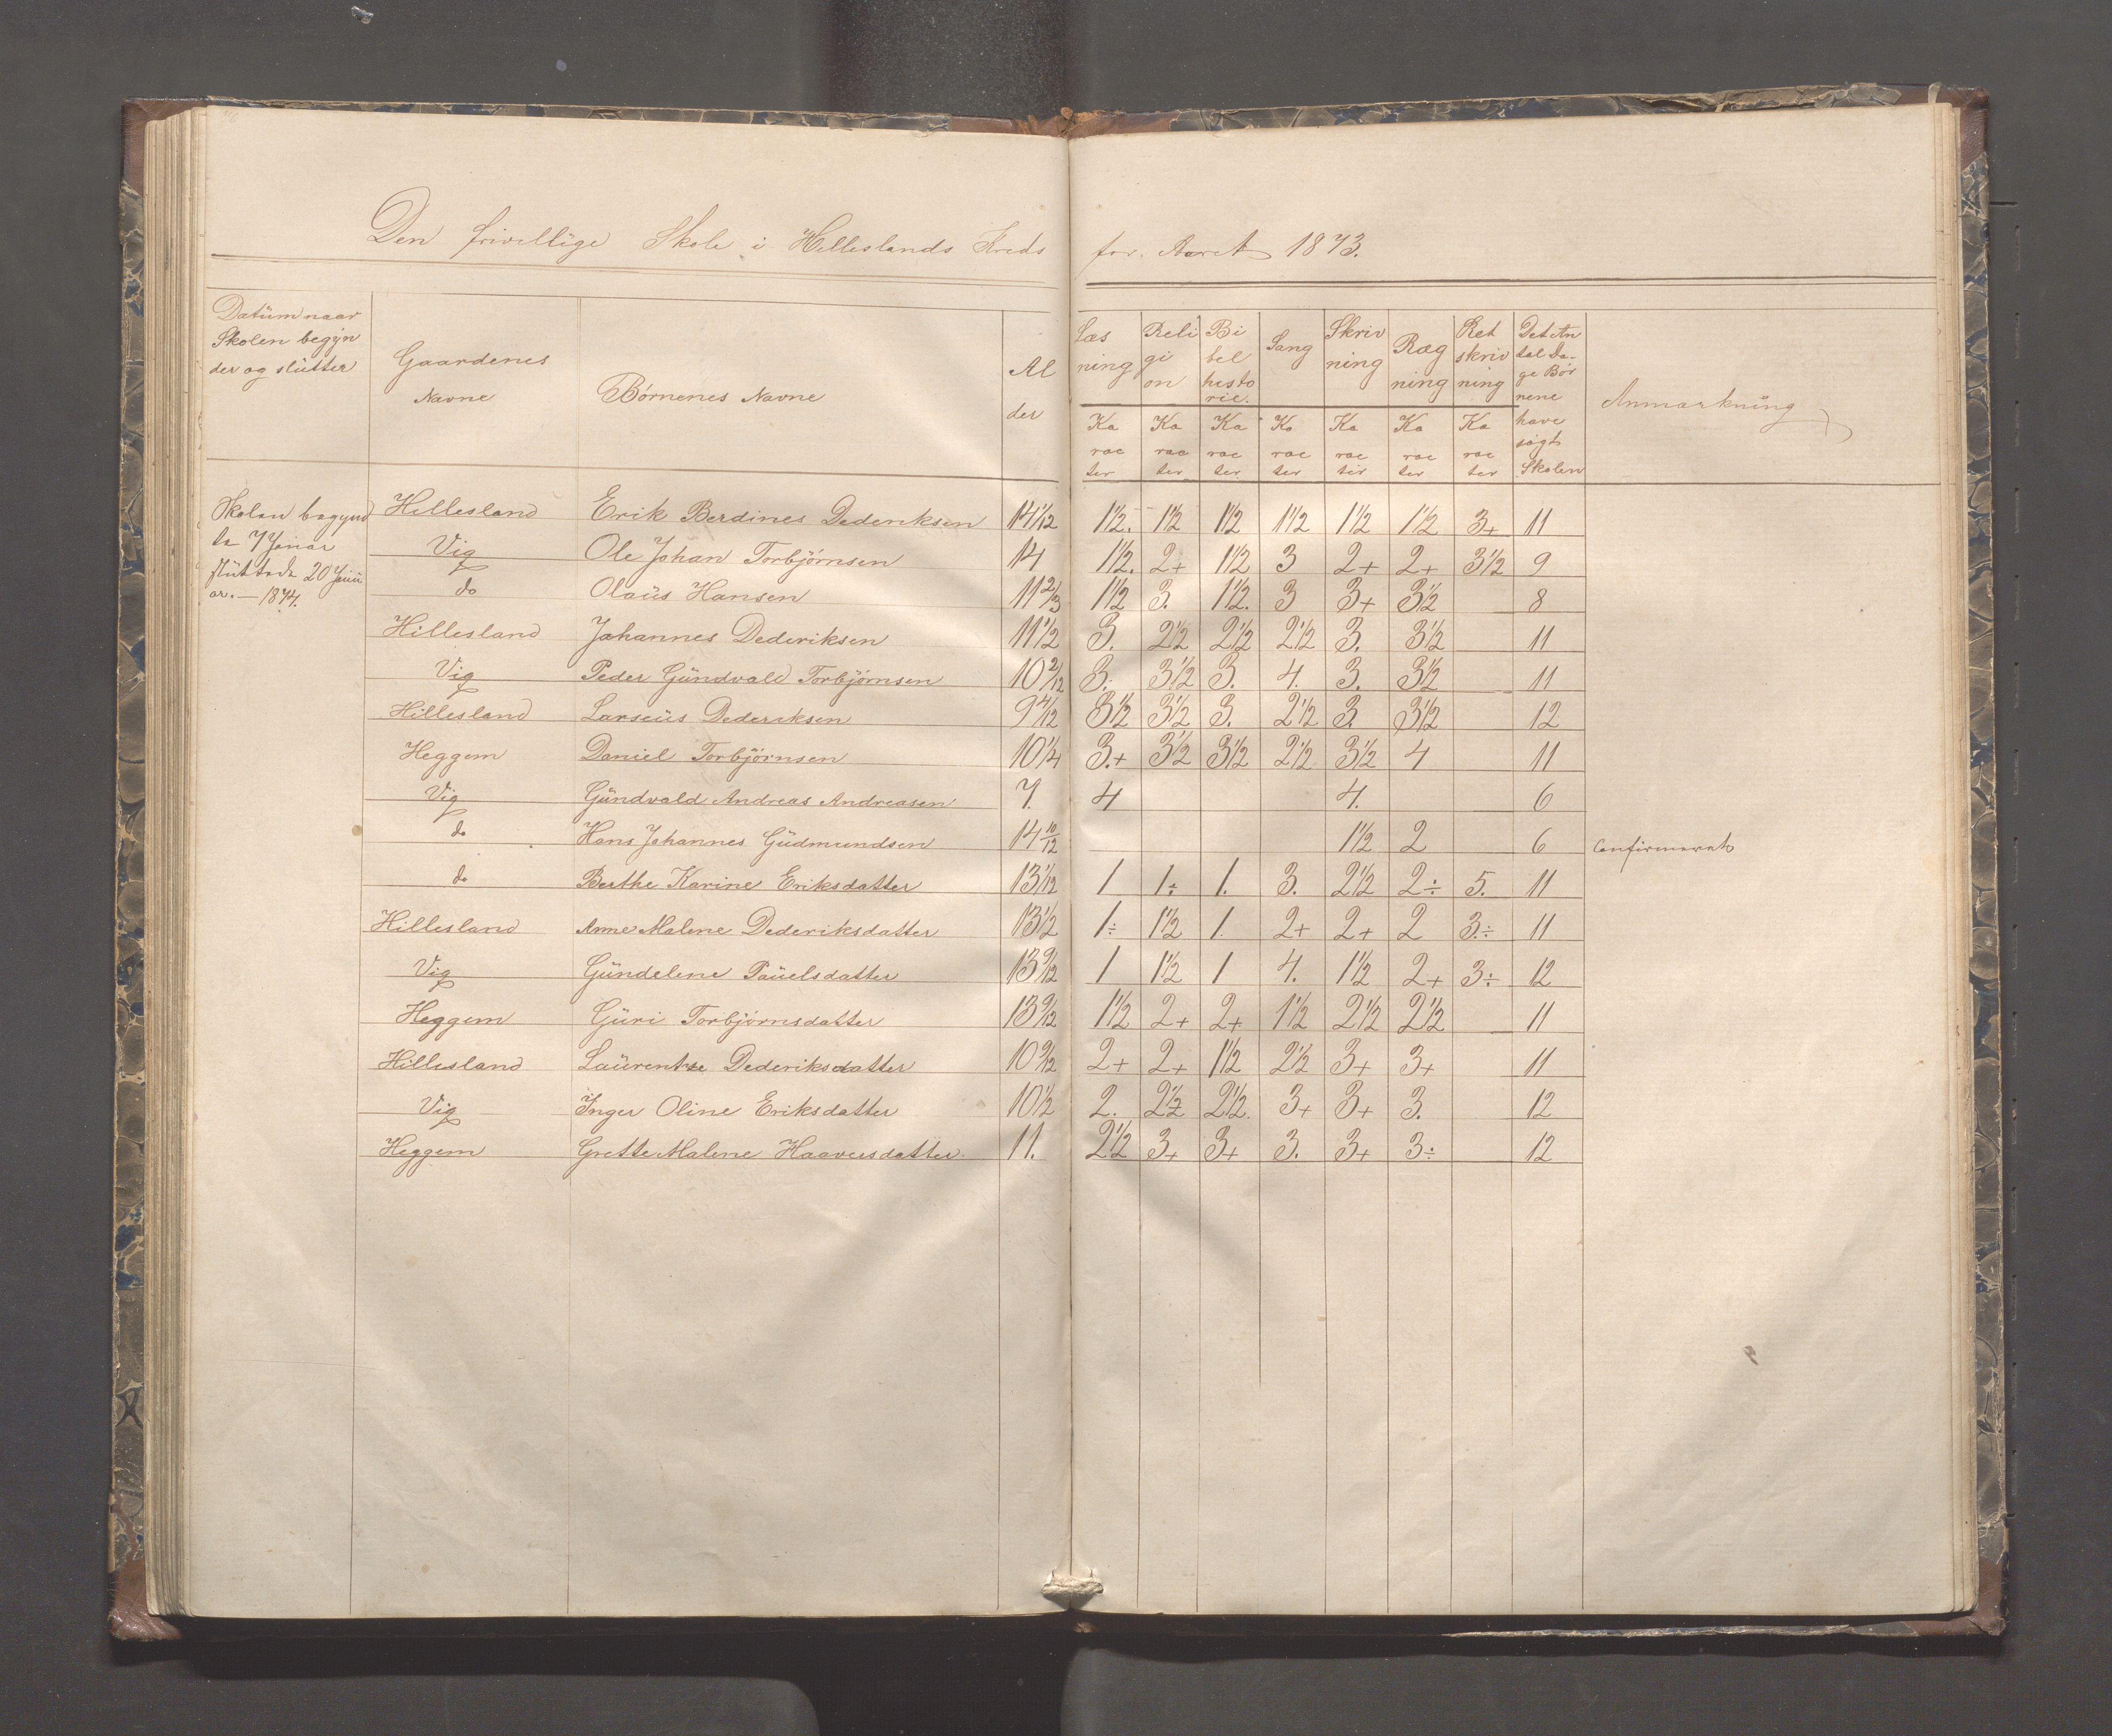 Den frivillige Skole i Hilleslands Kreds for Aaret 1873.
Datüm naar Skolen begÿn der og slütter | Gaardenes Navne | Børnenes Navne | Al der | Læs ning Ka rac ter | Reli gi on Ka rac ter | Bi bel histo rie. Ka rac ter | Sang Ka rac ter | Skriv ning Ka rac ter | Ræg ning Ka rac ter | Ret skriv ning Ka rac ter | Det An tal Da- ge Bør nene have søgt Skolen | Anmærkning
Skolen begynd
te 7 Janar
slüttede 20 Janü
ar. — 1874.
Hillesland Erik Berdines Dederiksen 14 1/12 1 1/2. 1 1/2 1 1/2 1 1/2 1 1/2 1 1/2 3+ 11
Vig Ole Johan Torbjørnsen 14 1 1/2. 2+ 1 1/2 3 2+ 2+ 3 1/2 9
do Olaüs Hansen 11 2/3 1 1/2 3. 1 1/2. 3 3+ 3 1/2 8
Hillesland Johannes Dederiksen 11 1/2 3. 2 1/2 2 1/2 2 1/2 3. 3 1/2 11
Vig Peder Gündvald Torbjørnsen 10 2/12 3. 3 1/2 3. 4. 3. 3 1/2 11
Hillesland Larseüs Dederiksen 9 4/12 3 1/2 3 1/2 3. 2 1/2 3. 3 1/2 12
Heggem Daniel Torbjørnsen 10 1/4 3.+ 3 1/2 3 1/2 2 1/2 3 1/2 4 11
Vig Gündvald Andreas Andreasen 7. 4 4. 6
do Hans Johannes Güdmundsen 14 10/12 1 1/2 2 6 Confirmeret
do Berthe Karine Eriksdatter 13 1/12 1 1÷ 1. 3. 2 1/2 2÷ 5. 11
Hillesland Anne Malene Dederiksdatter 13 1/2 1÷ 1 1/2 1. 2+ 2+ 2 3÷ 11
Vig Gündelene Paüelsdatter 13 9/12 1 1 1/2 1 4. 1 1/2 2+ 3÷ 12
Heggem Güri Torbjørnsdatter 13 9/12 1 1/2 2+ 2+ 1 1/2 2 1/2 2 1/2 11
Hillesland Laürentze Dederiksdatter 10 9/12 2+ 2+ 1 1/2 2 1/2 3+ 3+ 11
Vig Inger Oline Eriksdatter 10 1/2 2. 2 1/2 2 1/2. 3+ 3+ 3. 12
Heggem Grette Malene Haaversdatter. 11. 2 1/2 3+ 3+ 3. 3+ 3÷ 12